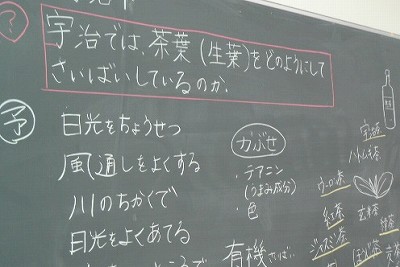 ?
宇治では、茶葉(生葉)をどのようにして
さいばいしているのか。
予
日光をちょうせつ
風通しをよくする
川のちかくで
日光をよくあてる
かぶせ
・テアニン
(うまみ成分)
・色
有機さいばい
宇治茶
ハトムギ茶
ウーロン茶
玄米茶
紅茶
ジャスミン茶
ほうじ茶